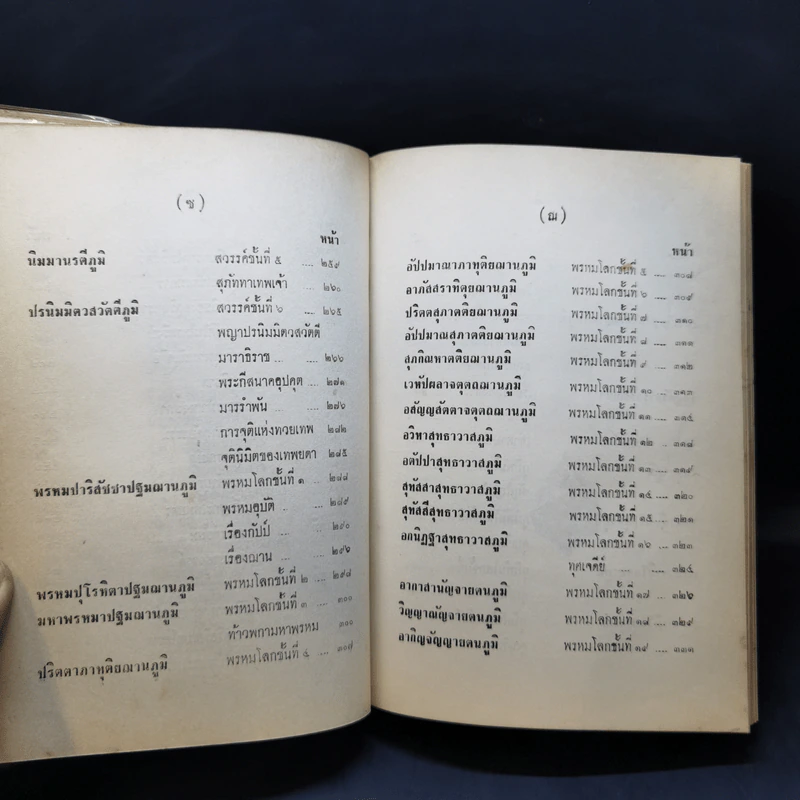 (ซ)
หน้า
นิมมานรดีภูมิ สวรรค์ชั้นที่ ๕ .... ๒๕๙
สุภัททาเทพเจ้า ๒๖๐
ปรนิมมิตวสวัตดีภูมิ สวรรค์ชั้นที่ ๖ .... ๒๖๕
พญาปรนิมมิตวสวัตดี
มาราธิราช ... ... ๒๖๖
พระกีสนาคอุปคุต .... ๒๗๑
มารรำพัน ... ๒๗๖
การจุติแห่งทวยเทพ ๒๘๒
จุตินิมิตของเทพยดา ๒๘๕
พรหมปาริสัชชาปฐมฌานภูมิ พรหมโลกชั้นที่ ๑ .... ๒๘๘
พรหมอุบัติ ... ๒๘๙
เรื่องกัปป์ ... ๒๙๐
เรื่องฌาน ... ๒๙๖
พรหมปุโรหิตาปฐมฌานภูมิ พรหมโลกชั้นที่ ๒ .... ๒๙๘
มหาพรหมาปฐมฌานภูมิ พรหมโลกชั้นที่ ๓ .... ๓๐๐
ท้าวพกามหาพรหม ๓๐๑
ปริตตาภาทุติยฌานภูมิ พรหมโลกชั้นที่ ๔ .... ๓๐๗
(ฌ)
หน้า
อัปปมาณาภาทุติยฌานภูมิ พรหมโลกชั้นที่ ๕ .... ๓๐๘
อาภัสสราทิตุยฌานภูมิ พรหมโลกชั้นที่ ๖ .... ๓๐๙
ปริตตสุภาตติยฌานภูมิ พรหมโลกชั้นที่ ๗ .... ๓๑๐
อัปปมาณสุภาตติยฌานภูมิ พรหมโลกชั้นที่ ๘ .... ๓๑๑
สุภกิณหาตติยฌานภูมิ พรหมโลกชั้นที่ ๙ .... ๓๑๒
เวหัปผลาจตุตถฌานภูมิ พรหมโลกชั้นที่ ๑๐ .... ๓๑๓
อสัญญสัตตาจตุตถฌานภูมิ พรหมโลกชั้นที่ ๑๑ .... ๓๑๕
อวิหาสุทธาวาสภูมิ พรหมโลกชั้นที่ ๑๒ .... ๓๑๘
อตัปปาสุทธาวาสภูมิ พรหมโลกชั้นที่ ๑๓ .... ๓๑๙
สุทัสสาสุทธาวาสภูมิ พรหมโลกชั้นที่ ๑๔ .... ๓๒๐
สุทัสสีสุทธาวาสภูมิ พรหมโลกชั้นที่ ๑๕ .... ๓๒๑
อกนิฏฐาสุทธาวาสภูมิ พรหมโลกชั้นที่ ๑๖ .... ๓๒๓
ทุศเจดีย์ .... ๓๒๔
อากาสานัญจายตนภูมิ พรหมโลกชั้นที่ ๑๗ .... ๓๒๖
วิญญาณัญจายตนภูมิ พรหมโลกชั้นที่ ๑๘ .... ๓๒๙
อากิญจัญญายตนภูมิ พรหมโลกชั้นที่ ๑๙ .... ๓๓๑